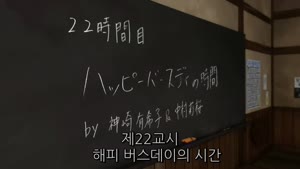 22時間目
ハッピーバースディの時間
by 神崎有希子&中村莉桜
제22교시
해피 버스데이의 시간